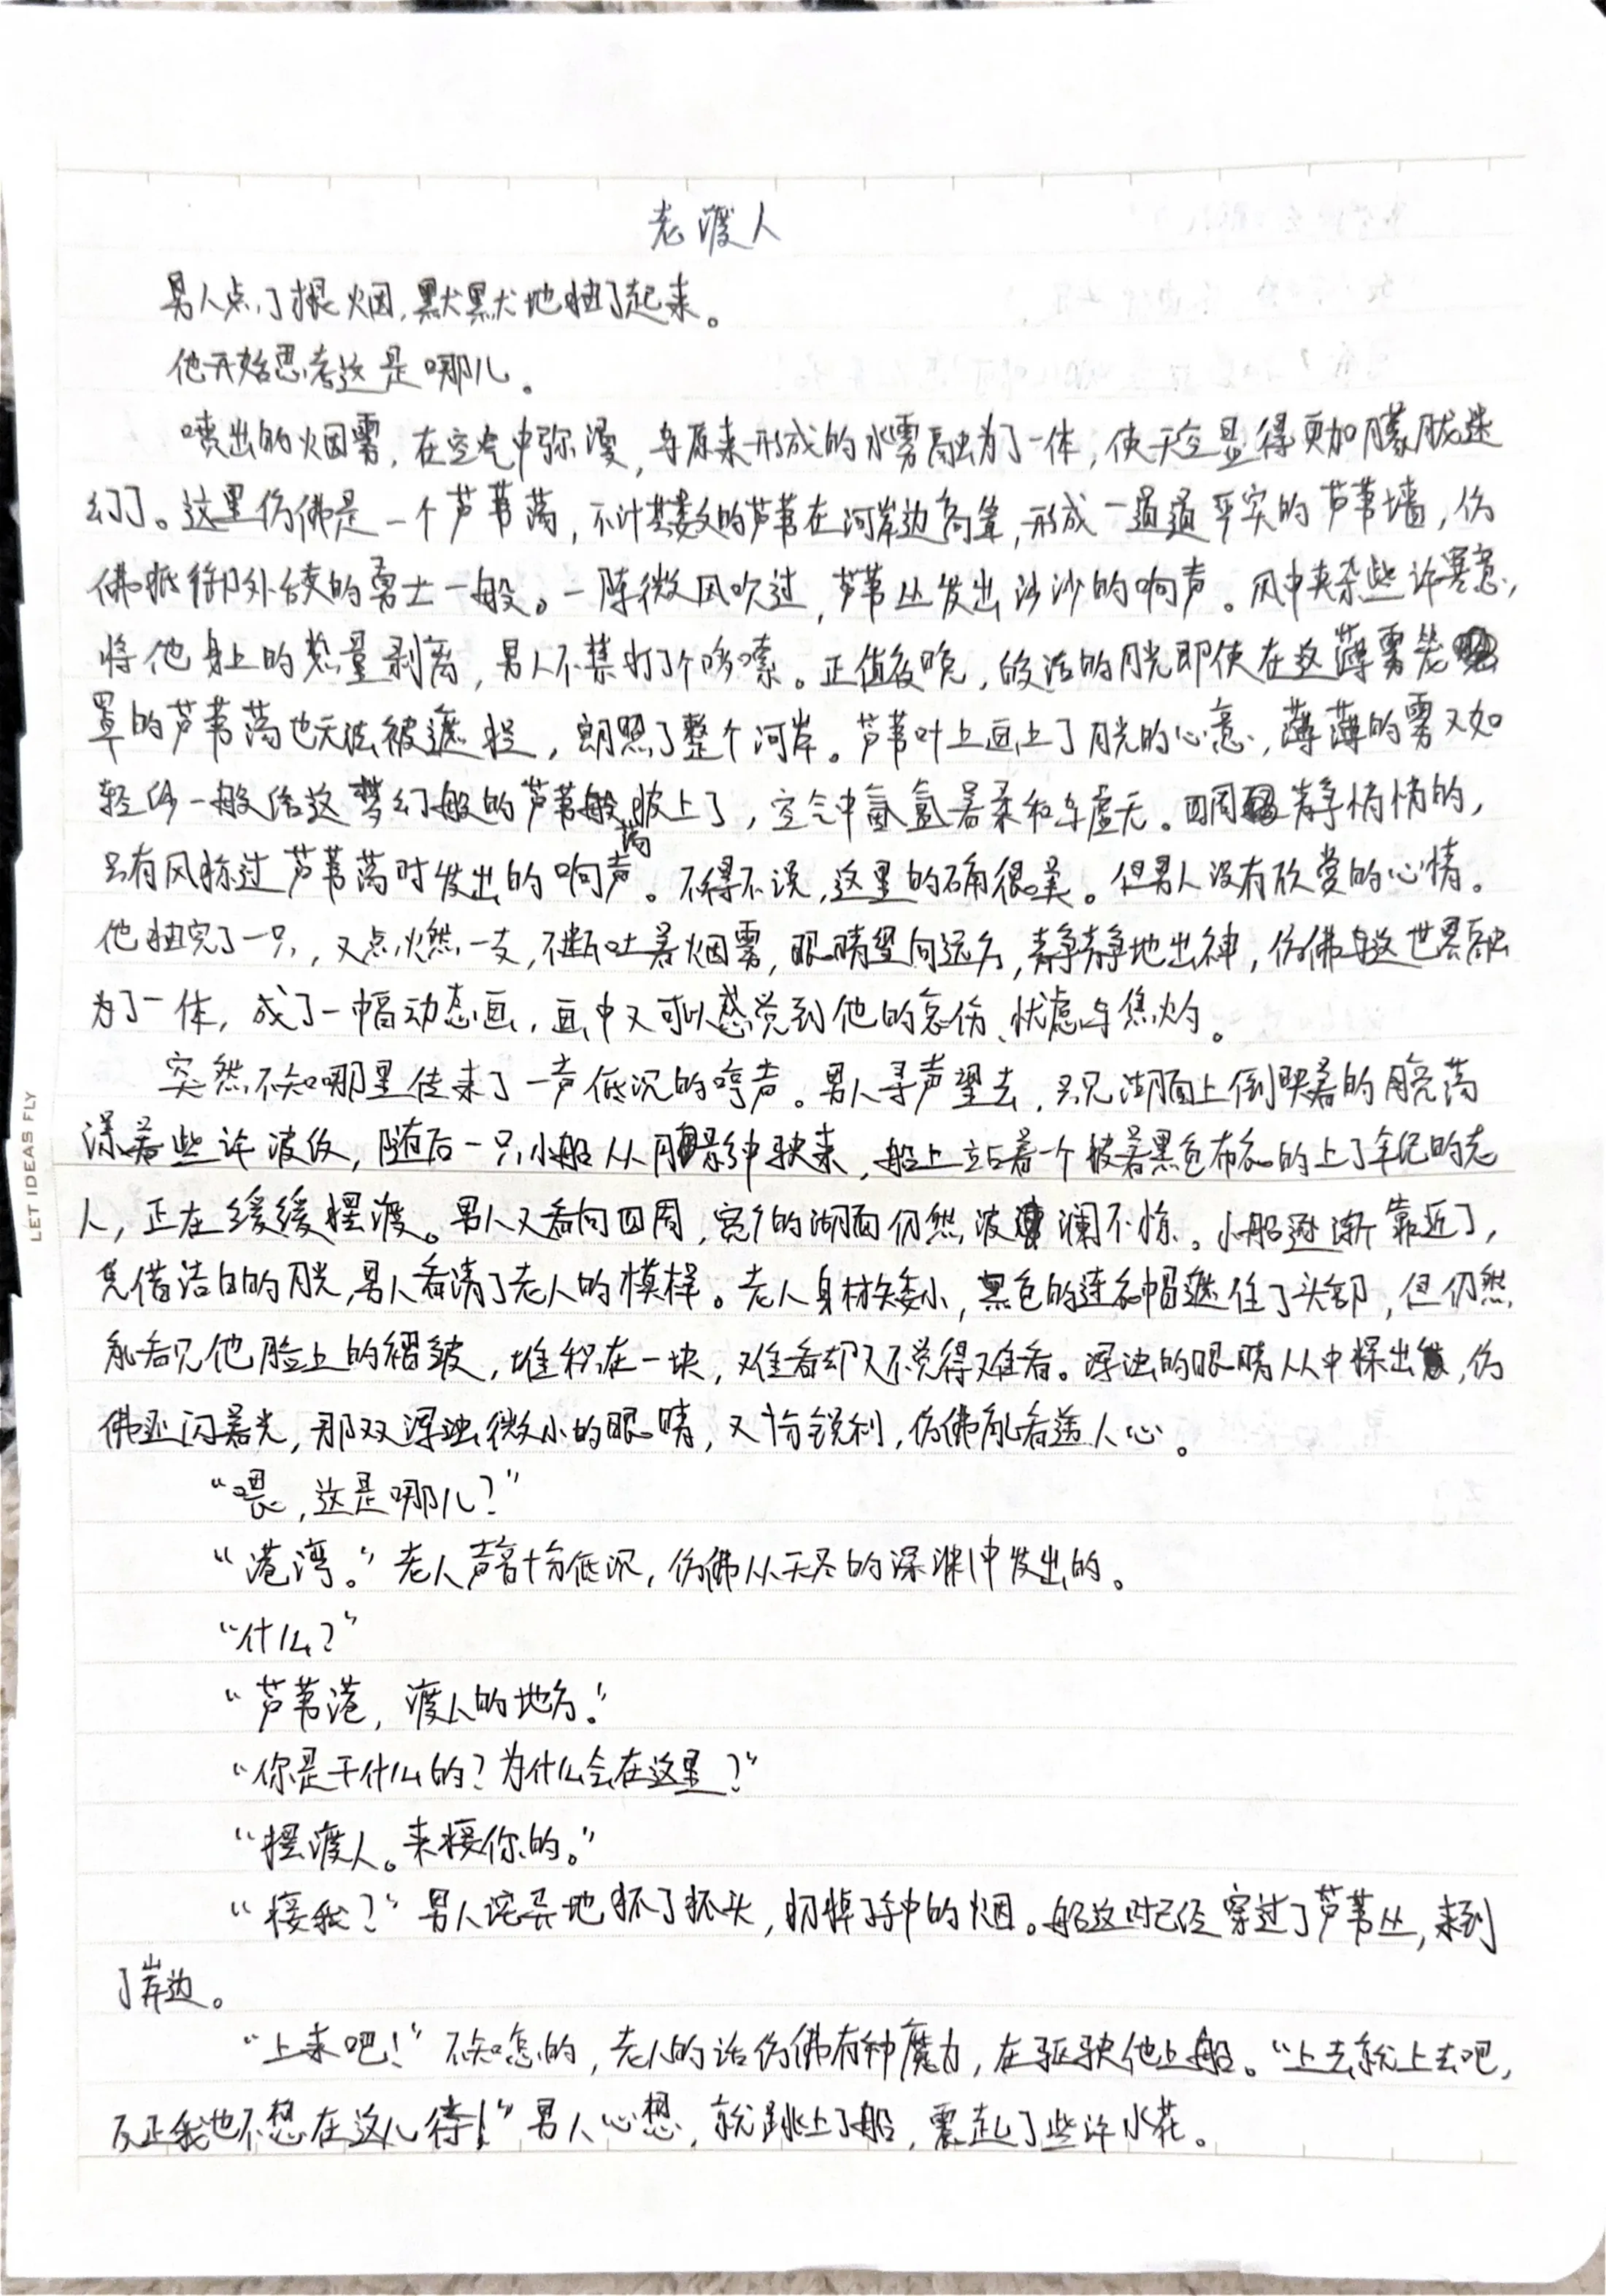 老渡人
男人点了根烟，默默地抽了起来。
他开始思考这是哪儿。
喷出的烟雾，在空气中弥漫，与原来形成的水雾融为了一体，使天空显得更加朦胧迷
幻了。这里仿佛是一个芦苇荡，不计其数的芦苇在河岸边高耸，形成一道道平实的芦苇墙，仿
佛抵御外侵的勇士一般。一阵微风吹过，芦苇丛发出沙沙的响声。风中夹杂些许寒意，
将他身上的热量剥离，男人不禁打了个哆嗦。正值夜晚，皎洁的月光即使在这薄雾笼
罩的芦苇荡也无法被遮拦，朗照了整个河岸。芦苇叶上画上了月光的心意，薄薄的雾又如
轻纱一般给这梦幻般的芦苇荡披上了，空气中氤氲着柔和与虚无。四周静悄悄的，
只有风称过芦苇荡时发出的响声。不得不说，这里的确很美。但男人没有欣赏的心情。
他抽完了一只，又点燃一支，不断吐着烟雾，眼睛望向远方，静静地出神，仿佛与这世界融
为了一体，成了一幅动态画，画中又可以感觉到他的忽伤、忧虑与焦灼。
突然不知哪里传来了一声低沉的哼声。男人寻声望去，只见湖面上倒映着的月亮荡
漾着些许波纹，随后一只小船从月影中驶来，船上立着一个披着黑色布衣的上了年纪的老
人，正在缓缓摆渡。男人又看向四周，宽广的湖面仍然波澜不惊。小船逐渐靠近了，
凭借洁白的月光，男人看清了老人的模样。老人身材矮小，黑色的连衣帽遮住了头部，但仍然
能看见他脸上的褶皱，堆积在一块，难看却又不觉得难看。浑浊的眼睛从中探出，仿
佛还闪着光，那双浑浊微小的眼睛，又十分锐利，仿佛能看透人心。
“喂，这是哪儿？”
“港湾。”老人声音十分低沉，仿佛从无尽的深渊中发出的。
“什么？”
“芦苇港，渡人的地方。”
“你是干什么的？为什么会在这里？”
“摆渡人。来接你的。”
“接我？”男人诧异地抓了抓头，扔掉了手中的烟。船这时已经穿过了芦苇丛，来到
了岸边。
“上来吧！”不知怎的，老人的话仿佛有种魔力，在驱驶他上船。“上去就上去吧，
反正我也不想在这儿待！”男人心想，就跳上了船，震起了些许水花。
LET IDEAS FLY